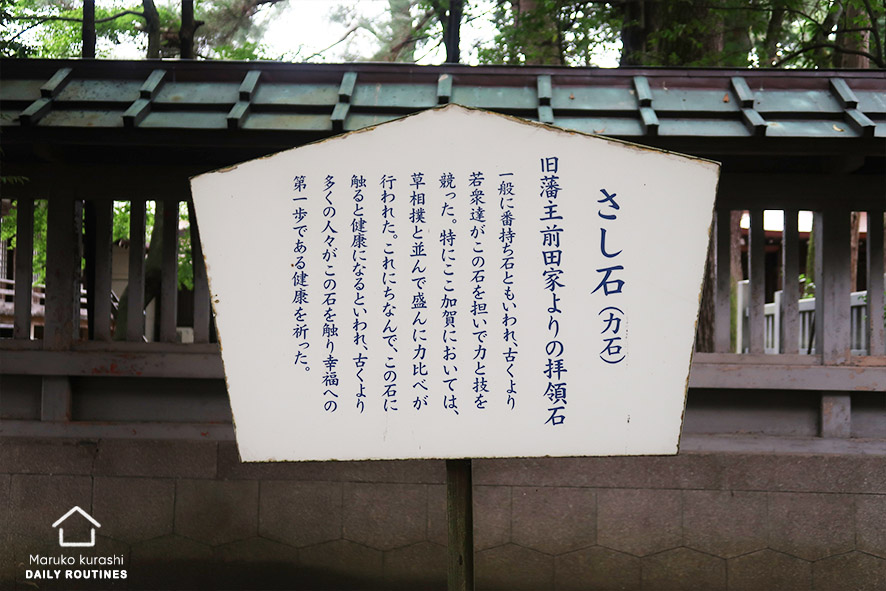 さし石(力石)
旧藩主前田家よりの拝領石
一般に番持ち石ともいわれ、古くより
若衆達がこの石を担いで力と技を
競った。特にここ加賀においては、
草相撲と並んで盛んに力比べが
行われた。これにちなんで、この石に
触ると健康になるといわれ、古くより
多くの人々がこの石を触り幸福への
第一歩である健康を祈った。
Maruko kurashi
DAILY ROUTINES